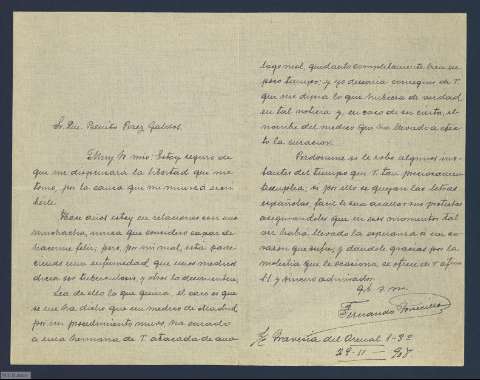 Sr. Dn. Benito Perez Galdós.
Muy Sr. mio: Estoy seguro de
que me dispensará la libertad que me
tomo, por la causa que me mueve a
Hace días estoy en relaciones con una
muchacha, unica que considero capaz de
hacerme feliz; pero, por mi mal, está
una enfermedad, que unos medicos
dicen ser tuberculosis, y otros lo
Sea de ello lo que quiera, el caso es que
se me ha dicho que un medico de Madrid
por un procedimiento nuevo, ha curado
a una hermana de V. atacada de
mal, quedando completamente bien en
poco tiempo; y yo desearía conseguir de V.
que me dijera lo que hubiera de verdad
en tal noticia y, en caso de ser cierta, el
nombre del medico que ha llevado a
la curación.
Perdoneme si le robo algunos
del tiempo que V. tan
emplea; si por ello se quejan las letras
españolas, facil le será acallar sus protestas
asegurandoles que en esos momentos tal
vez habrá llevado la esperanza a un
que sufre; y dandole gracias por la
molestia que le ocasiona se ofrece de V. afmo.
S.S. y sincero admirador
q. b. s. m.
Fernando
S/c del Arenal 1-3º
29-11-908